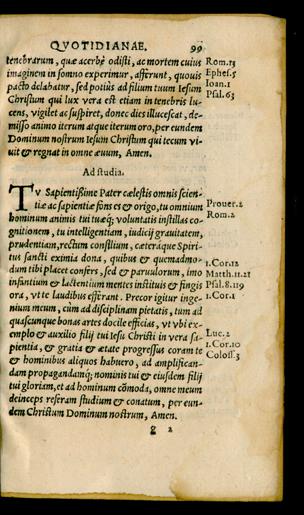 QVOTIDIANAE. 99
tenebrarum, quæ acerbè odisti, ac mortem cuius
imaginem in somno experimur, afferunt, quouis
pacto delabatur, sed potiùs ad filium tuum Iesum
Christum qui lux vera est etiam in tenebris lu-
cens, vigilet ac suspiret, donec dies illucescat, de-
misso animo iterum atque iterum oro, per eundem
Dominum nostrum Iesum Christum qui tecum vi-
uit & regnat in omne æuum, Amen.
Rom.13
Ephes.5
Ioan.1
Psal.63
Ad studia.
TV Sapientißime Pater cælestis omnis scien-
tiæ ac sapientiæ fons es & origo, tu omnium
hominum animis tui tuæq; voluntatis instillas co-
gnitionem, tu intelligentiam, iudicij grauitatem,
prudentiam, rectum consilium, cæteráque Spiri-
tus sancti eximia dona, quibus & quemadmo-
dum tibi placet confers, sed & paruulorum, imo
infantium & lactentium mentes instituis & fingis
ora, vt te laudibus efferant. Precor igitur inge-
nium meum, cum ad disciplinam pietatis, tum ad
quascunque bonas artes docile efficias, vt vbi ex-
emplo & auxilio filij tui Iesu Christi in vera sa-
pientia, & gratia & ætate progressus coram te
& hominibus aliquos habuero, ad amplifican-
dam propagandamq; nominis tui & eiusdem filij
tui gloriam, et ad hominum cōmoda, omne meum
deinceps referam studium & conatum, per eun-
dem Christum Dominum nostrum, Amen.
Prouer.2
Rom.2
1.Cor.12
Matth.11.21
Psal.8.119
1.Cor.1
Luc.2
1.Cor.10
Coloss.3
g 2